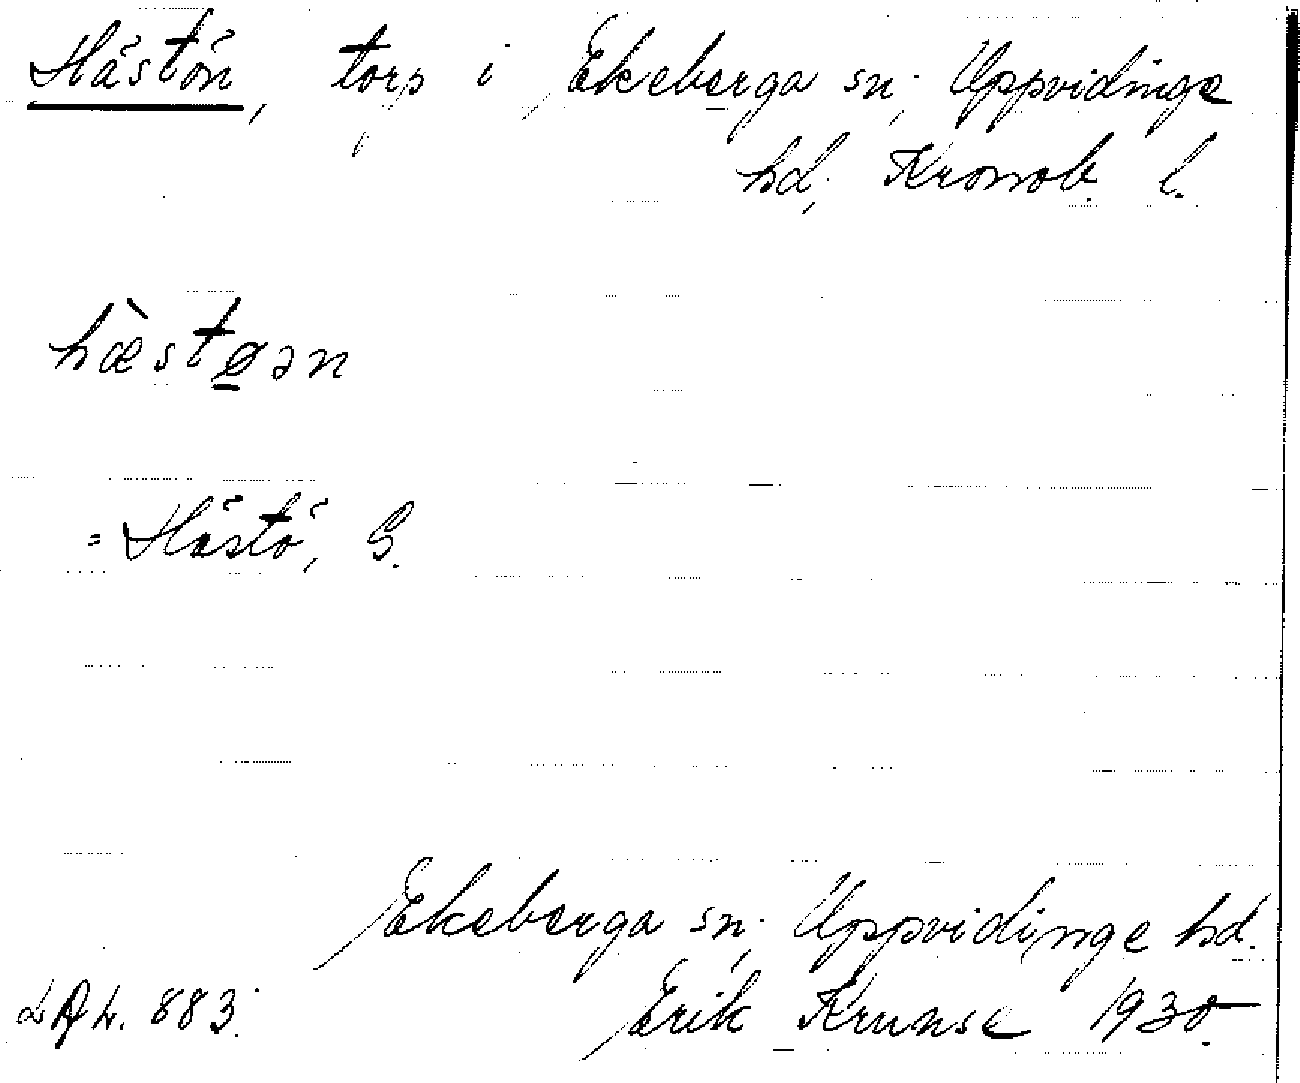 Hästön, torp i Ekeberga sn; Uppvidinge
hd; Kronob. l.
hæ̀støən
= Hästö, G.
Ekeberga sn; Uppvidinge hd.
883. Erik Krunse 1930.